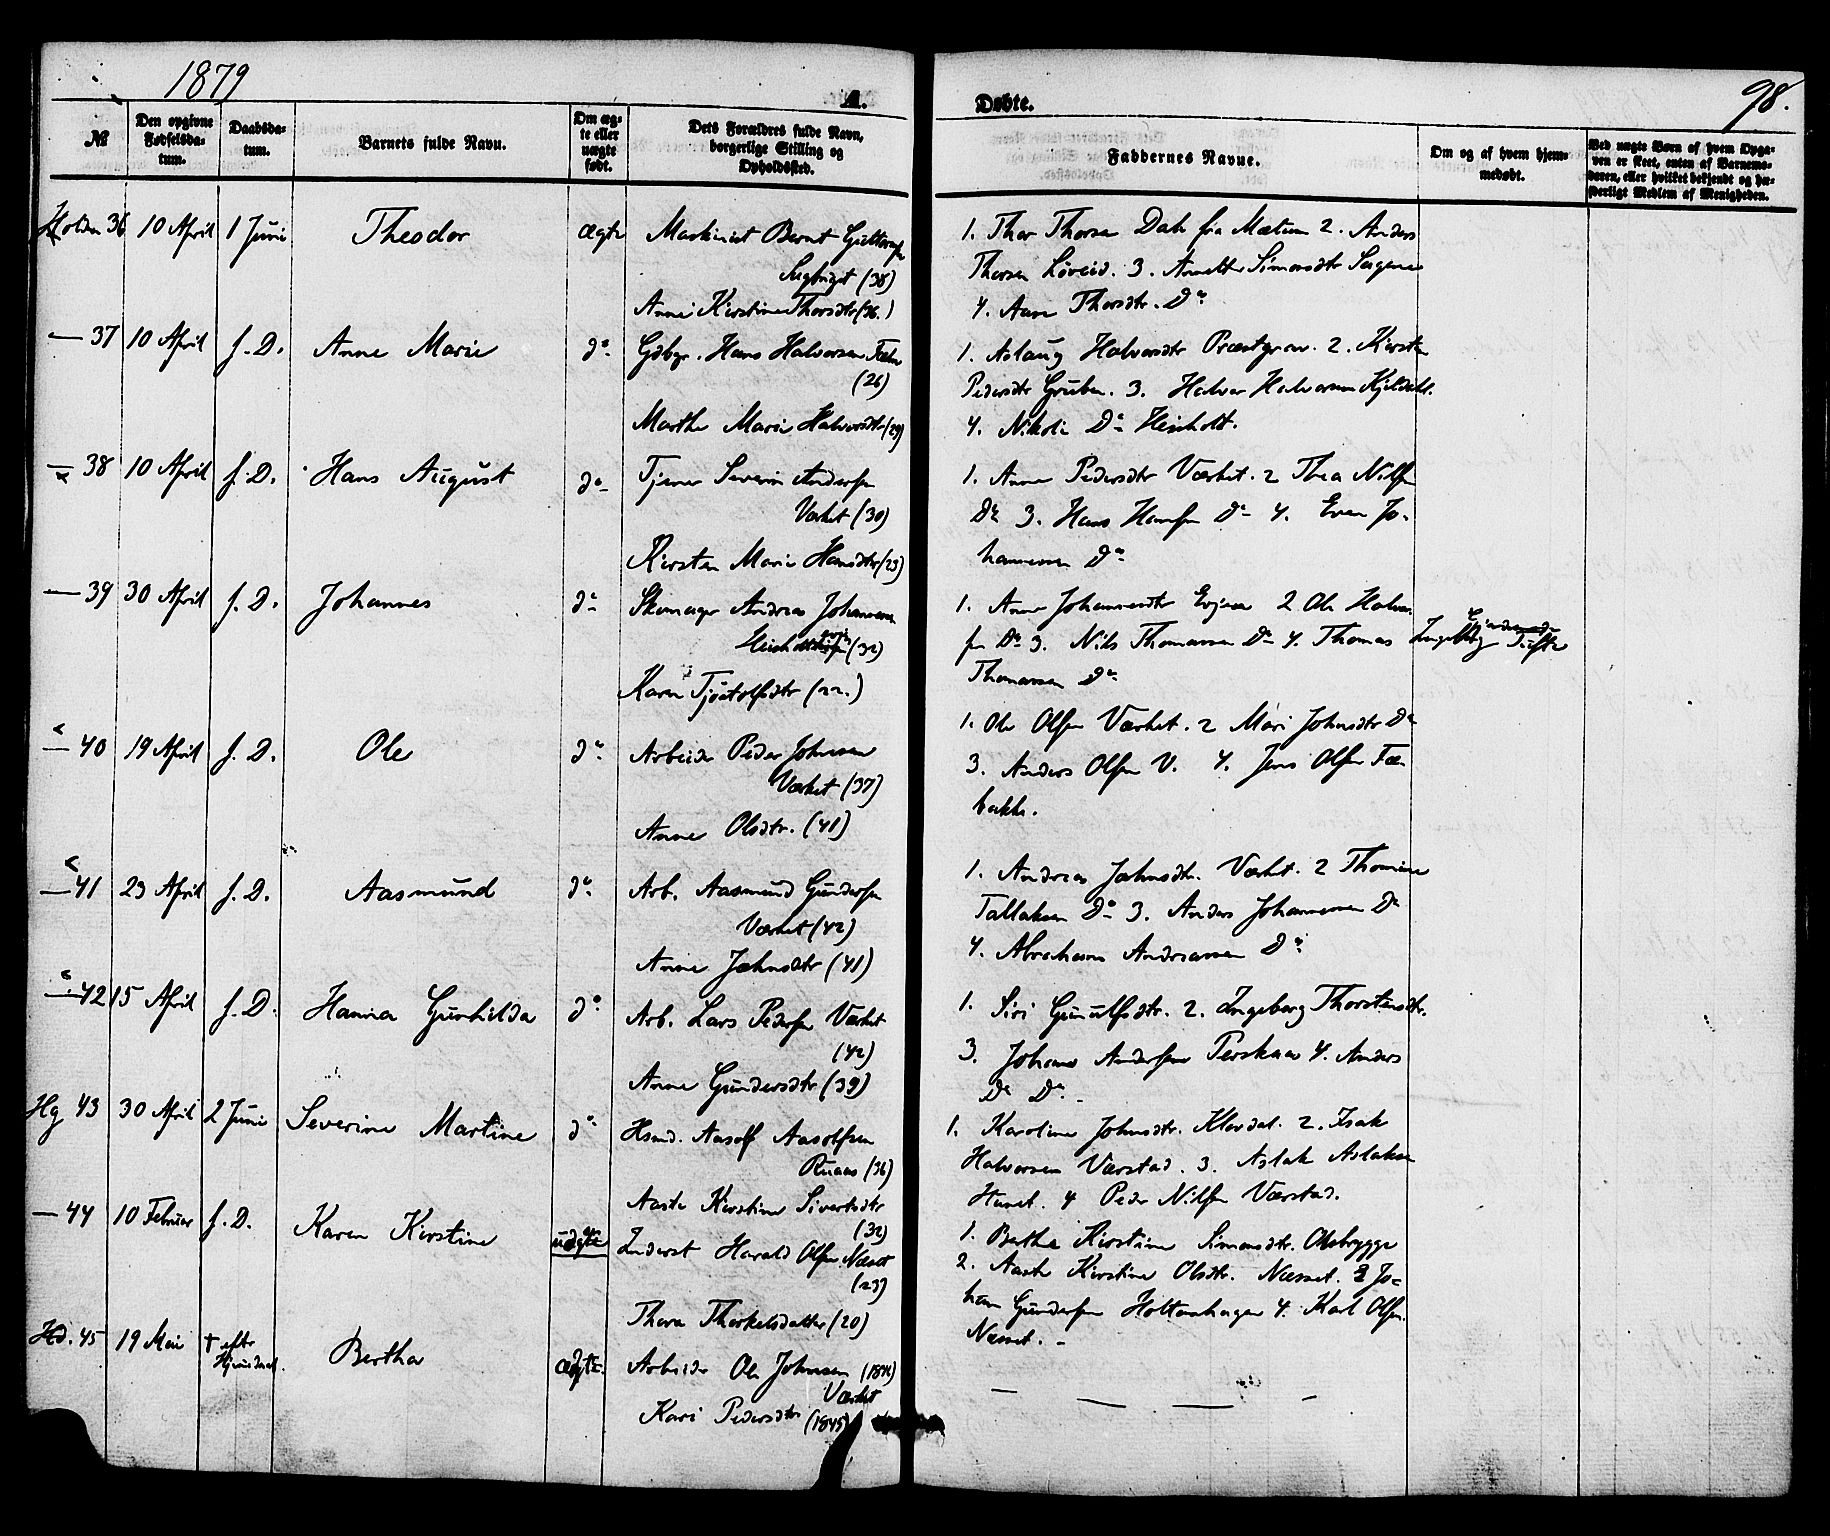 1879
A.
Døbte.
98.
№
Den opgivne Fødselsdatum.
Daabsdatum.
Barnets fulde Navn.
Om ægte eller uægte født.
Dets Forældres fulde Navn, borgerlige Stilling og Opholdssted.
Faddernes Navne.
Om og af hvem hjemmedøbt.
Ved uægte Børn af hvem Opgaven er skeet, enten af Barnemoderen, eller hvilket bekjendt og hæderligt Medlem af Menigheden.
Holden 36 10 April 1 Juni Theodor ægte Maskinist Bernt
(38)
Anne Kirstine Thorsdtr (36.)
1. Thor Thorsen Dal fra Mælum 2. Anders
Thorsen Løveid. 3. Simonsdtr
4. Aase Thorsdtr. Do
— 37 10 April s. D. Anne Marie do Gdbgr. Hans Halvorsen
(26)
Marthe Marie Halvorsdtr (29)
1. Aslaug Halvorsdtr Præstgrav. 2. Kirsten
Pedersdtr Gruben. 3. Halvor Halvorsen Kjeldal.
4. Nikoli Do Heisholt.
— 38 10 April s. D. Hans August do Tjener Severin Andersen
Værket (30)
Kirsten Marie Hansdtr (23)
1. Anne Pedersdtr Værket. 2 Thea Nilsen
Do 3. Hans Hansen Do 4. Even Jo-
hannessen Do
— 39 30 April s. D. Johannes do Skomager Andreas Johannesen
(32)
Karen Tjostolfsdtr (22.)
1. Anne Johannesdtr 2 Ole Halvor-
sen Do 3. Nils Thomassen Do 4. Thomas
Thomassen Do
Ingeborg Tufte
— 40 19 April s. D. Ole do Arbeider Peder Johnsen
Værket (37)
Anne Olsdtr. (41)
1. Ole Olsen Værket. 2 Mari Johnsdtr Do
3. Anders Olsen V. 4. Jens Olsen Fæ-
bakke.
— 41 23 April s. D. Aasmund do Arb. Aasmund Gundersen
Værket (42)
Anne Johnsdtr (41)
1. Andrea Johnsdtr. Værket. 2 Thomine
Tallaksen Do 3. Anders Johannessen Do
4. Abraham Andreassen Do
— 42 15 April s. D. Hanna Gunhilda do Arb. Lars Pedersen Værket
(42)
Anne Gundersdtr (39)
1. Siri Gunulfsdtr. 2. Ingeborg Thorstensdtr.
3. Johans Andersen 4. Anders
Do Do. -
Hg 43 30 April 2 Juni Severine Martine do Hsmd. Aasolf Aasolfsen
Ruaas (36)
Aaste Kirstine Sivertsdtr
(32)
1. Karoline Johnsdtr. Klovdal. 2. Isak
Halvorsen Værstad. 3. Aslak Aslaksen
4 Peder Nilsen Værstad.
— 44 10 Februar s. D. Karen Kirstine uægte Inderst Harald Olsen Næset
(23)
Thora Thorkelsdatter (20)
1. Berthe Kirstine Simonsdtr. Olsbrygge
2. Aaste Kirstine Olsdtr. Næsset. 3 Jo-
han Gundersen Holtanhagen 4. Karl Olsen
Næsset. -
Hd. 45 19 Mai † efter Hjemmedaab. Bertha ægte. Arbeider Ole Johnsen
Værket
Kari Pedersdtr (1845)